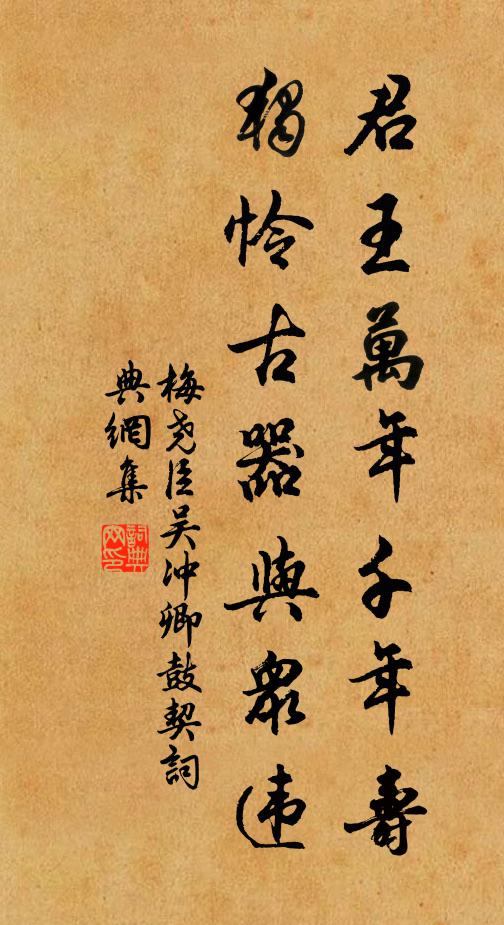 君王萬年千年壽
獨怜古器與眾違
梅尧臣吴冲卿鼓契詞
典網集
詞典网印